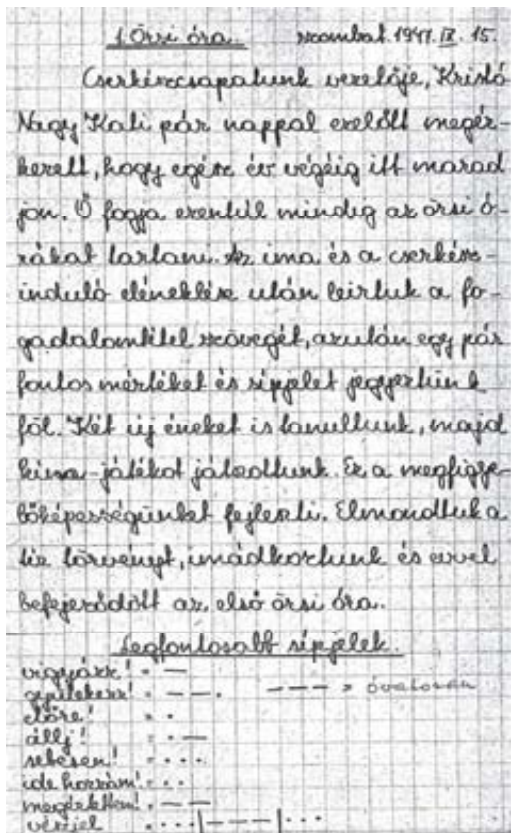 1. Őrsi óra. szombat. 1947. IX. 15.
Cserkészcsapatunk vezetője, Kristó
Nagy Kati pár nappal ezelőtt megér-
kezett, hogy egész év végéig itt marad
jon. Ő fogja ezentúl mindig az őrsi ó-
rákat tartani. Az ima és a cserkész-
induló eléneklése után leirtuk a fo-
gadalomtétel szövegét, azután egy pár
fontos mértéket és sipjelet jegyeztünk
föl. Két új éneket is tanultunk, majd
kimx-játékot játszottunk. Ez a megfigye-
lőképességünket fejleszti. Elmondtuk a
tiz törvényt, imádkoztunk és evvel
befejeződött az első őrsi óra.
Legfontosabb sípjelek.
vigyázz! = —
gyülekezz! = — — . — — — = óvatosan
előre! = .
állj! = . —
sebesen! = . . .
ide hozzám! = . .
megértettem! = — —
vészjel = . . . | — — — | . . .